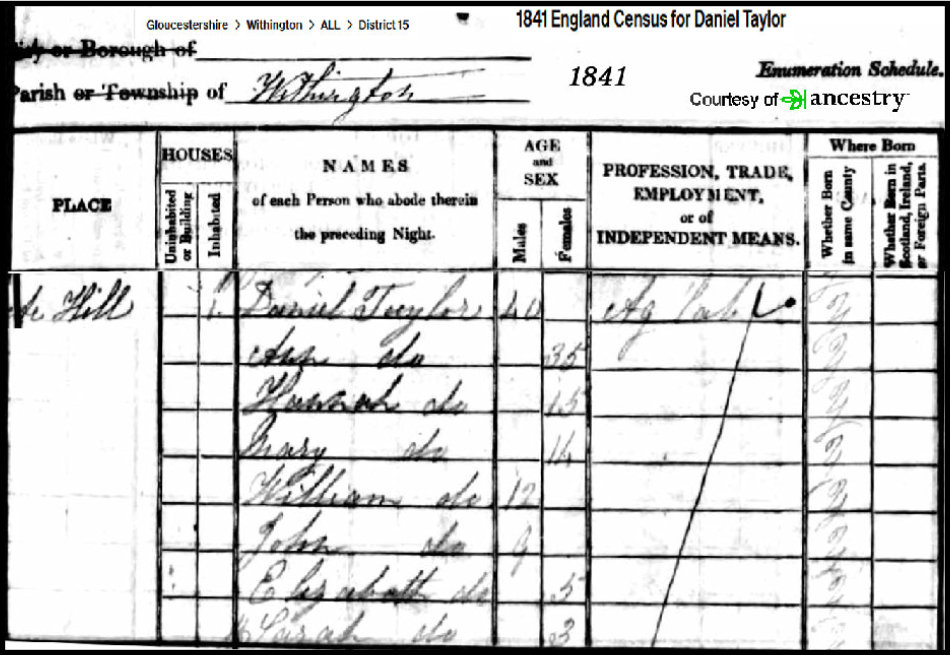 Gloucestershire > Withington > ALL > District 15
1841 England Census for Daniel Taylor
City or Borough of
Parish or Township of Withington
1841
Enumeration Schedule.
Courtesy of ancestry
PLACE
HOUSES
Uninhabited or Building
Inhabited
NAMES
of each Person who abode therein
the preceding Night.
AGE
and
SEX
Males
Females
PROFESSION, TRADE,
EMPLOYMENT,
or of
INDEPENDENT MEANS.
Where Born
Whether Born in same County
Whether Born in Scotland, Ireland, or Foreign Parts.
Hill 1 Daniel Taylor 40 Ag Lab Y
Ann do 35 Y
Hannah do 15 Y
Mary do 14 Y
William do 12 Y
John do 9 Y
Elizabeth do 5 Y
Sarah do 3 Y